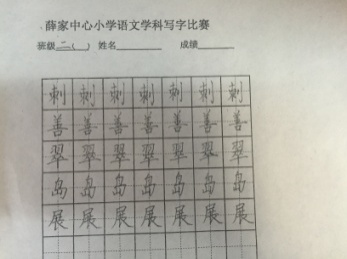 薛家中心小学语文学科写字比赛
班级 二 ( ) 姓名________ 成绩______
刺 刺 刺 刺 刺 刺 刺
善 善 善 善 善 善 善
翠 翠 翠 翠 翠 翠 翠
岛 岛 岛 岛 岛 岛 岛
展 展 展 展 展 展 展